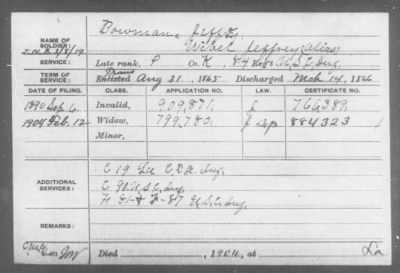 NAME OF SOLDIER: Bowman, Jeff D,
I.N.B. 3/8/19 Webel Jeffrey, alias
SERVICE: Late rank, P Co. K, 84 Reg't U.S.C. Inf.
TERM OF SERVICE: Trans Enlisted Aug 31, 1865 Discharged Mch 14, 1866
DATE OF FILING. CLASS. APPLICATION NO. LAW. CERTIFICATE NO.
1890 Sep 6 Invalid, 909,871 766,389
1904 Feb. 12 Widow, 799,780 884323
Minor,
ADDITIONAL SERVICES: C 19 La C.D.A. Inf.
C 90 U.S.C. Inf.
H 81 & F-87 U.S.C. Inf.
REMARKS:
Died , 1904, at La